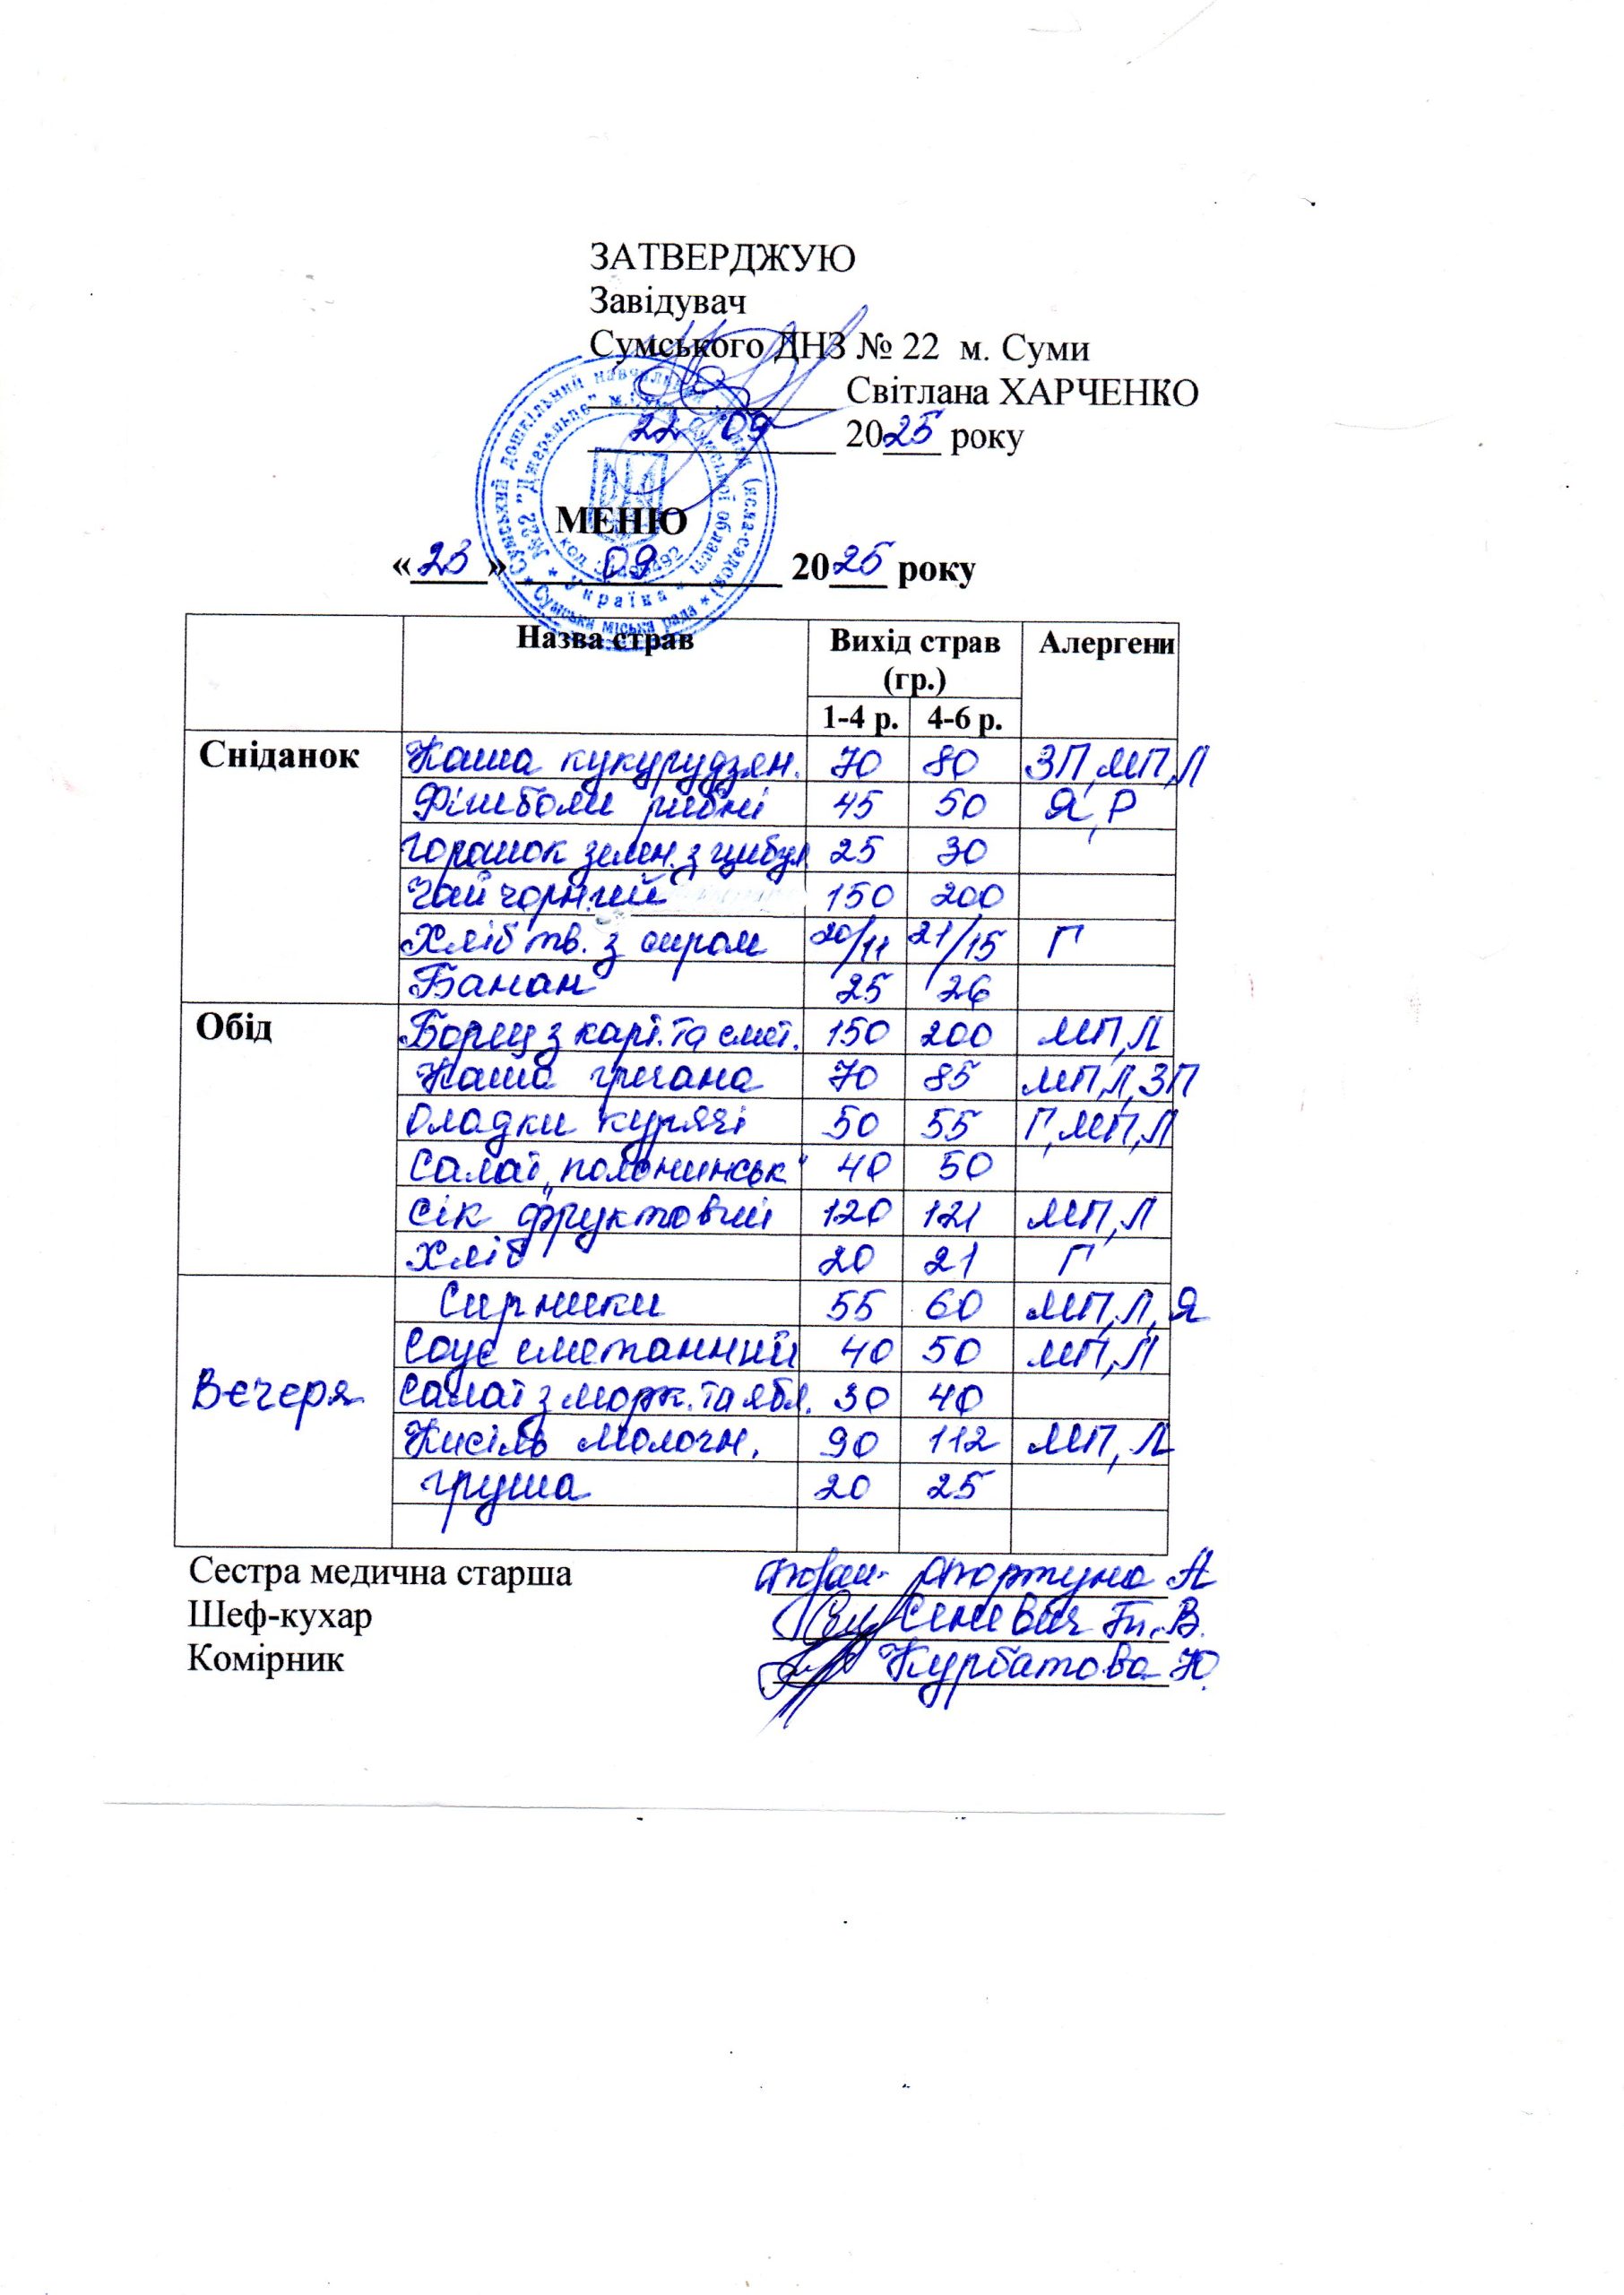 ЗАТВЕРДЖУЮ
Завідувач
Сумського ДНЗ № 22 м. Суми
Світлана ХАРЧЕНКО
22 09 2025 року
МЕНЮ
«23» 09 2025 року
Назва страв Вихід страв (гр.) Алергени
1-4 р. 4-6 р.
Сніданок Каша кукурудзян. 70 80 ЗП, МП, Л
Фішболи рибні 45 50 Я, Р
Горошок зелен. з цибул 25 30
Чай чорний 150 200
Хліб тв. з сиром 20/11 21/15 Г
Банан 25 26
Обід Борщ з карт. та смет. 150 200 МП, Л
Каша гречана 70 85 МП, Л, ЗП
Оладки курячі 50 55 Г, МП, Л
Салат „полонинськ“ 40 50
Сік фруктовий 120 121 МП, Л
Хліб 20 21 Г
Вечеря Сирники 55 60 МП, Л, Я
Соус сметанний 40 50 МП, Л
Салат з морк. та ябл. 30 40
Кисіль молочн. 90 112 МП, Л
груша 20 25
Сестра медична старша Фортуна А
Шеф-кухар В.
Комірник Курбатова Ю.
Сумський дошкільний навчальний заклад (ясла-садок) № 22 "Джерельце" м. Суми Сумської області
Сумська міська рада * Україна * код